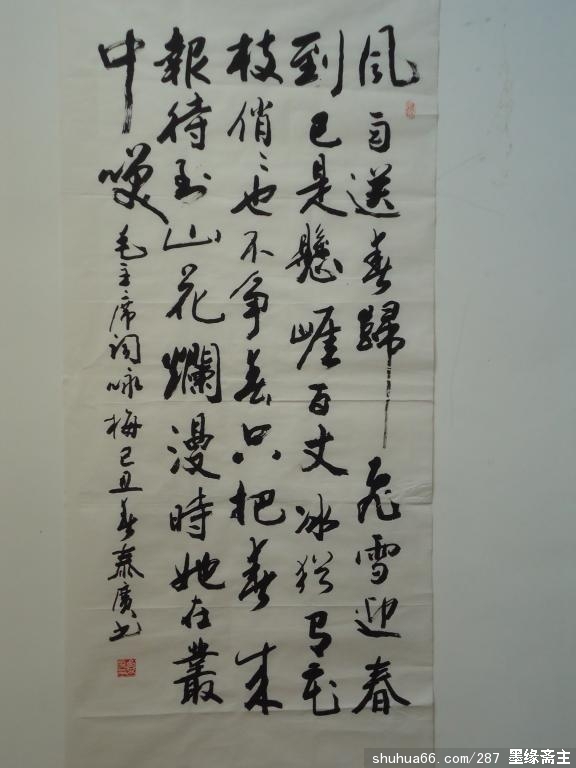 风雨送春歸飛雪迎春
到已是懸崖百丈冰猶有花
枝俏〻也不争春只把春来
報待到山花爛漫時她在叢
中咲
毛主席词咏梅己丑春廣书
shuhua66.com/287 墨缘斋主